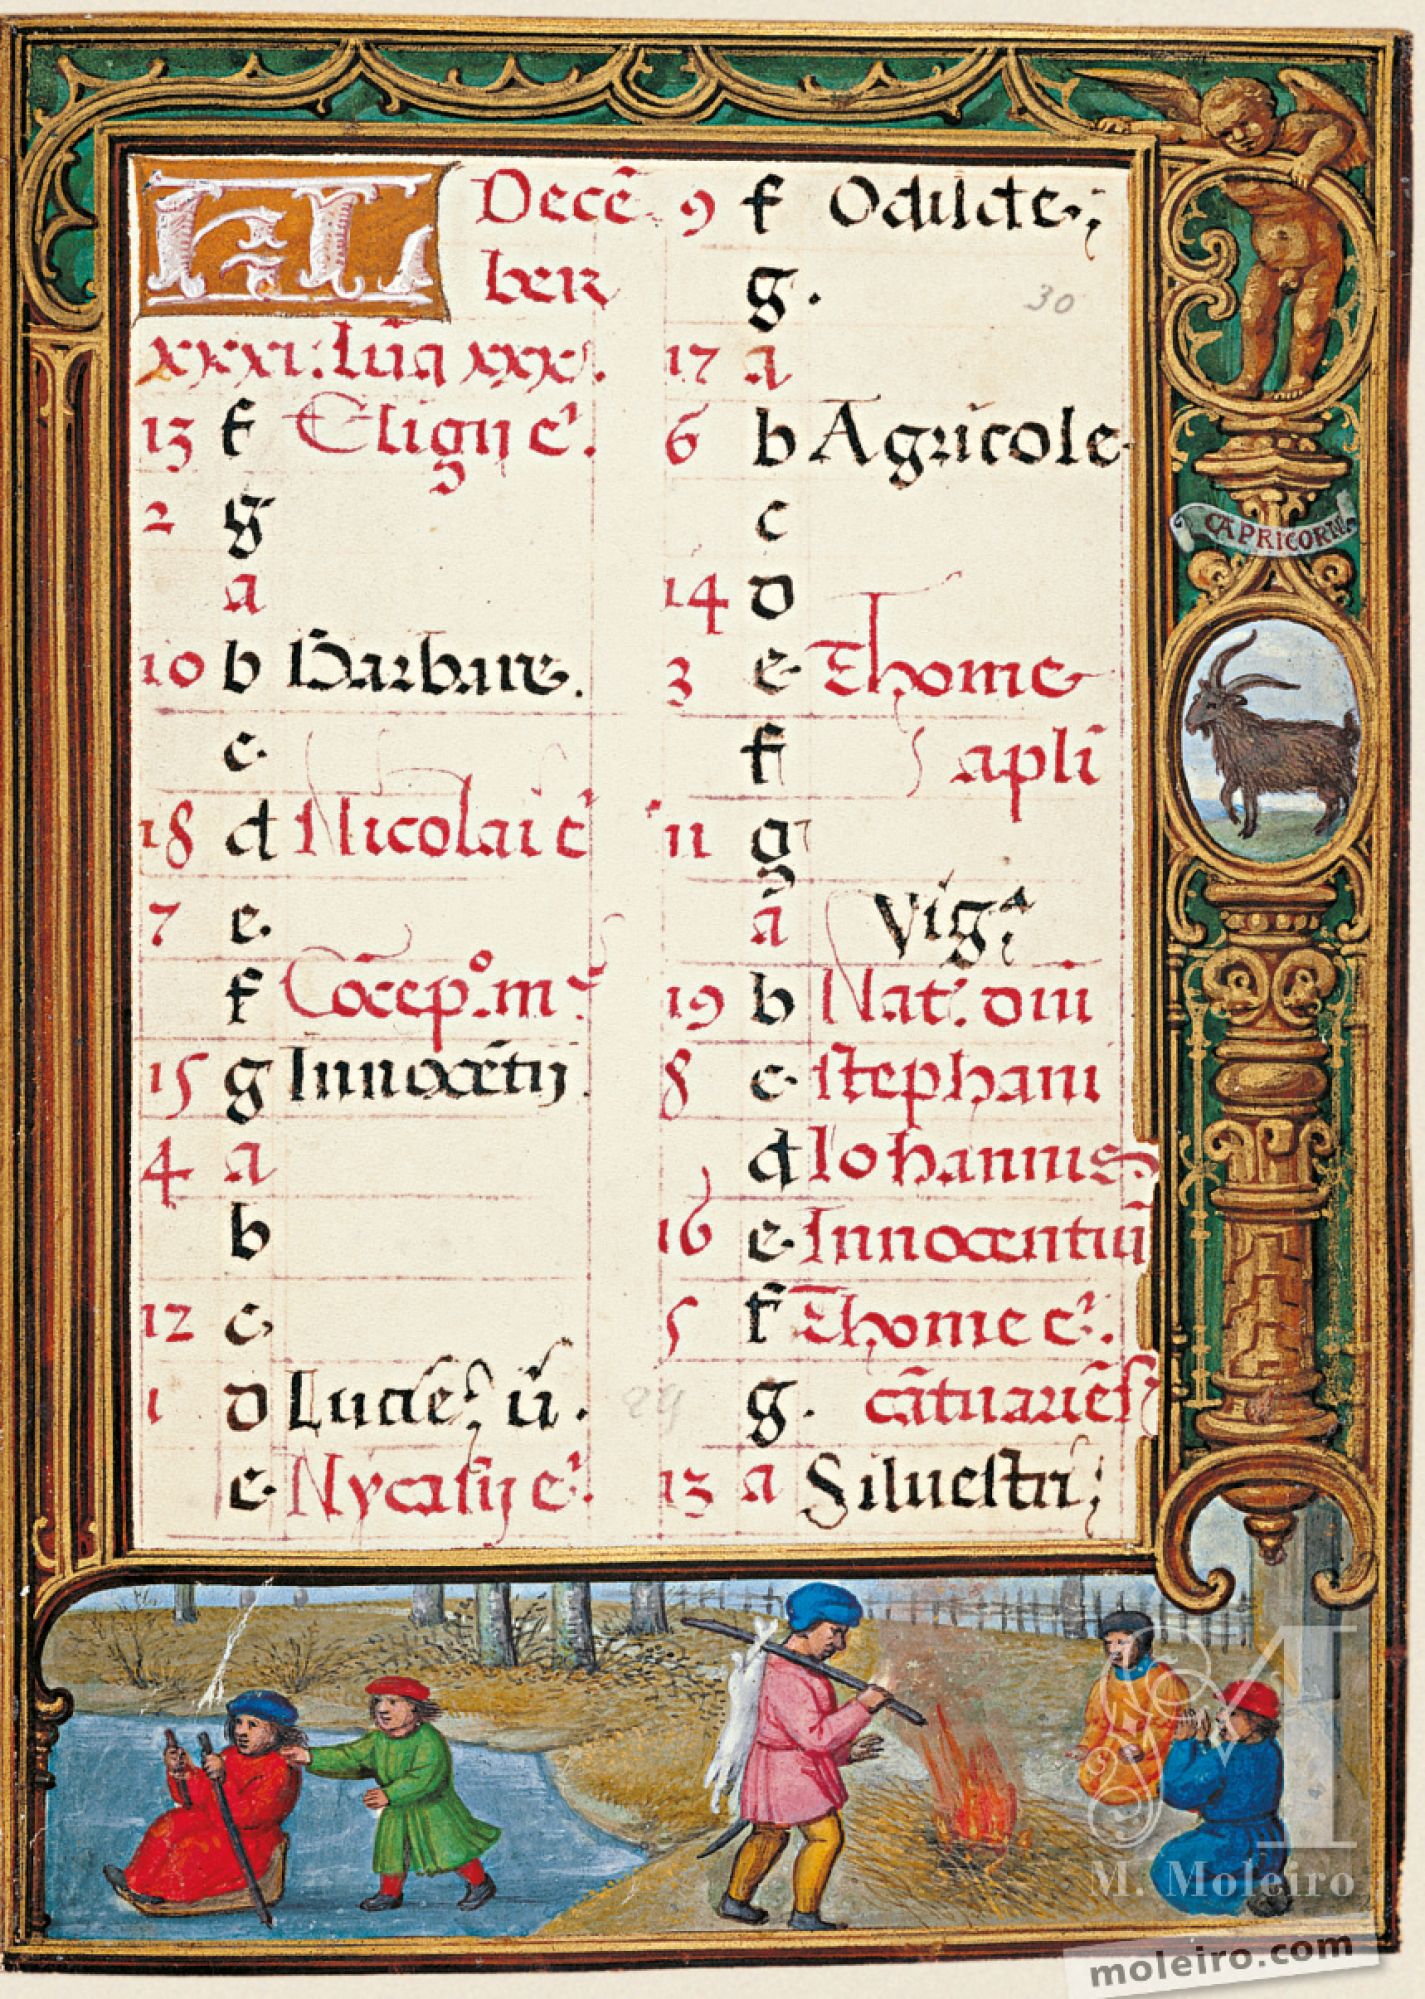 KL Decē
ber
xxxi. Lūa xxx.
13 f Eligij c̄.
2 g
a
10 b Barbare.
c.
18 d Nicolai c̄
7 e.
f Cōcep.º m̄
15 g Innocētij.
4 a
b
12 c.
1 d Lucie, v̄.
e. Nycasij c̄.
9 f Odilde;
g. 30
17 a
6 b Agricole.
c
14 d
3 e. Thome
f apli
11 g
a Vigª
19 b Nat. dni
8 c. stephani
d Iohannis
16 e. Innocentiū
5 f Thome c̄.
29 g. cātuariēs
13 a Siluestri;
CAPRICORN
M
M. Moleiro
moleiro.com